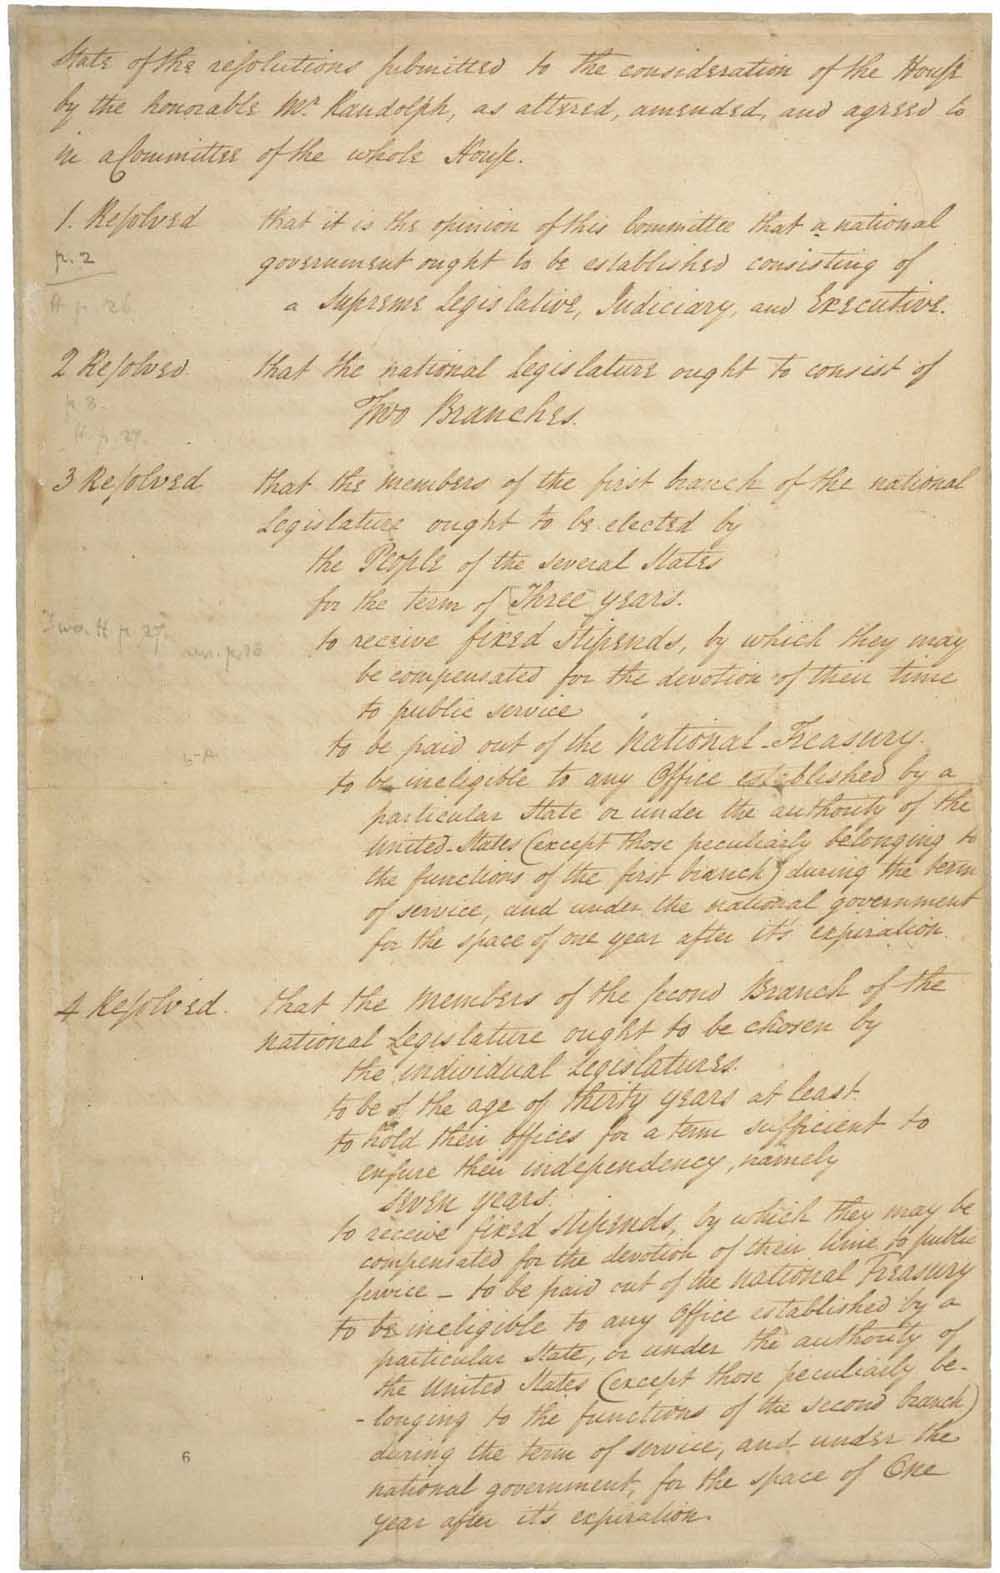 State of the resolutions submitted to the consideration of the House
by the honorable Mr. Randolph, as altered, amended, and agreed to
in a Committee of the whole House.
1. Resolved that it is the opinion of this Committee that a national
p. 2 government ought to be established consisting of
H p. 26 a Supreme Legislative, Judiciary, and Executive.
2 Resolved. that the national Legislature ought to consist of
p 3. Two Branches.
H. p. 27.
3 Resolved that the members of the first branch of the national
Legislature ought to be elected by
the People of the several States
for the term of [Three] years.
Two. H p 27.
to receive fixed stipends, by which they may
be compensated for the devotion of their time
to public service
to be paid out of the National-Treasury.
to be ineligible to any Office established by a
particular State or under the authority of the
United-States (except those peculiarly belonging to
the functions of the first branch) during the term
of service, and under the national government
for the space of one year after it's expiration.
4 Resolved. that the members of the second Branch of the
national Legislature ought to be chosen by
the individual Legislatures.
to be of the age of thirty years at least.
to hold their offices for a term sufficient to
ensure their independency, namely
seven years.
to receive fixed stipends, by which they may be
compensated for the devotion of their time to public
service – to be paid out of the National Treasury
to be ineligible to any Office established by a
particular State, or under the authority of
the United States (except those peculiarly be-
-longing to the functions of the second branch)
during the term of service, and under the
6
national government, for the space of One
year after it's expiration.